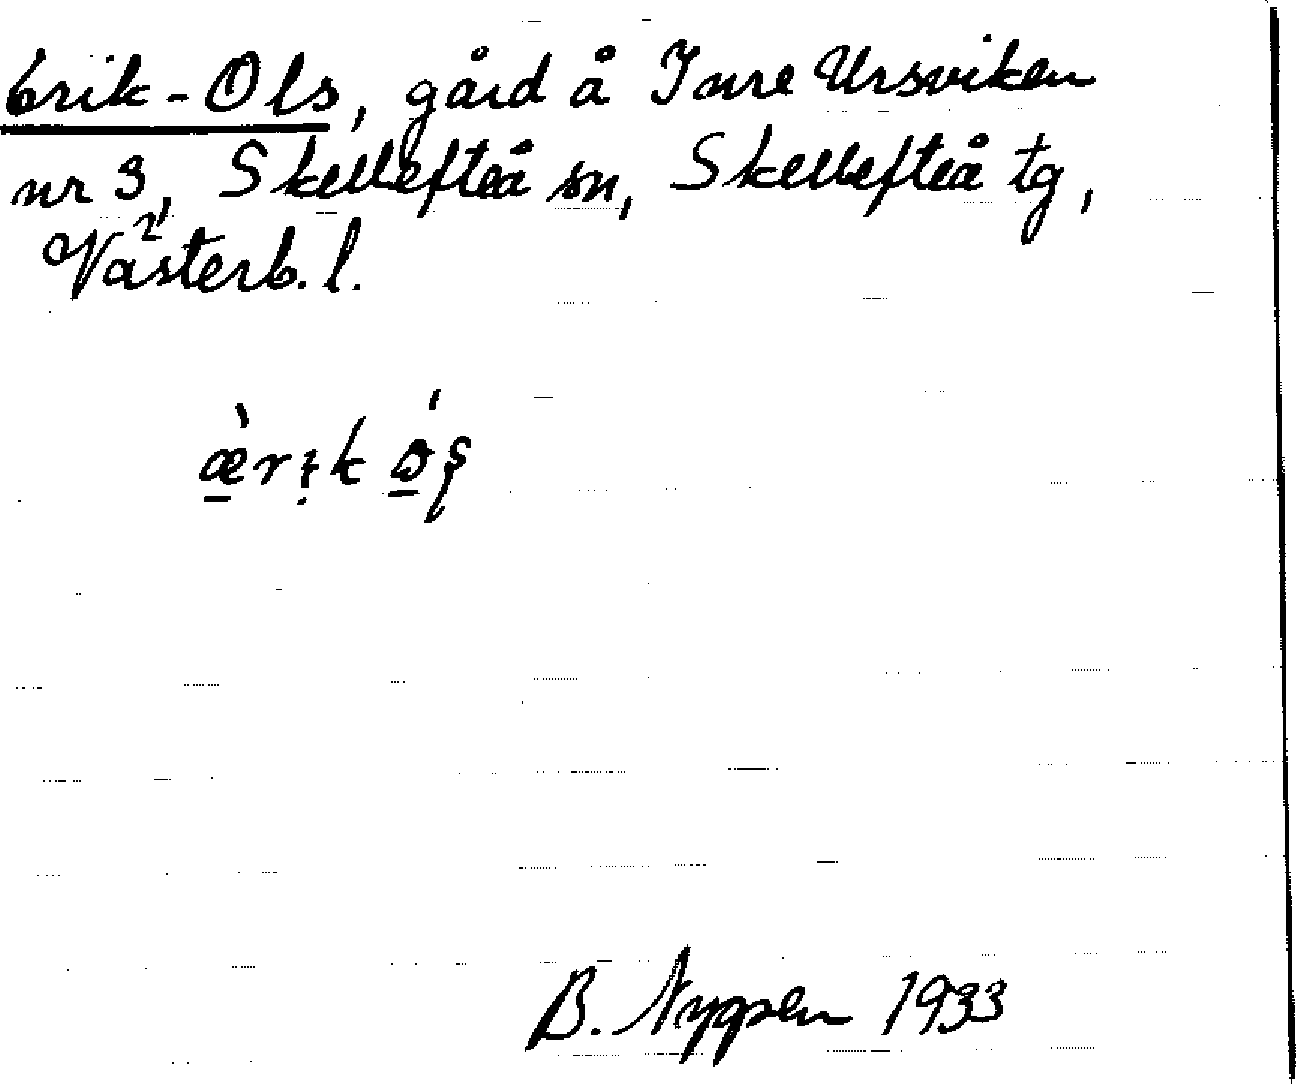 Erik-Ols, gård å Inre Ursviken
nr 3², Skellefteå sn, Skellefteå tg,
Västerb. l.
B. 1933